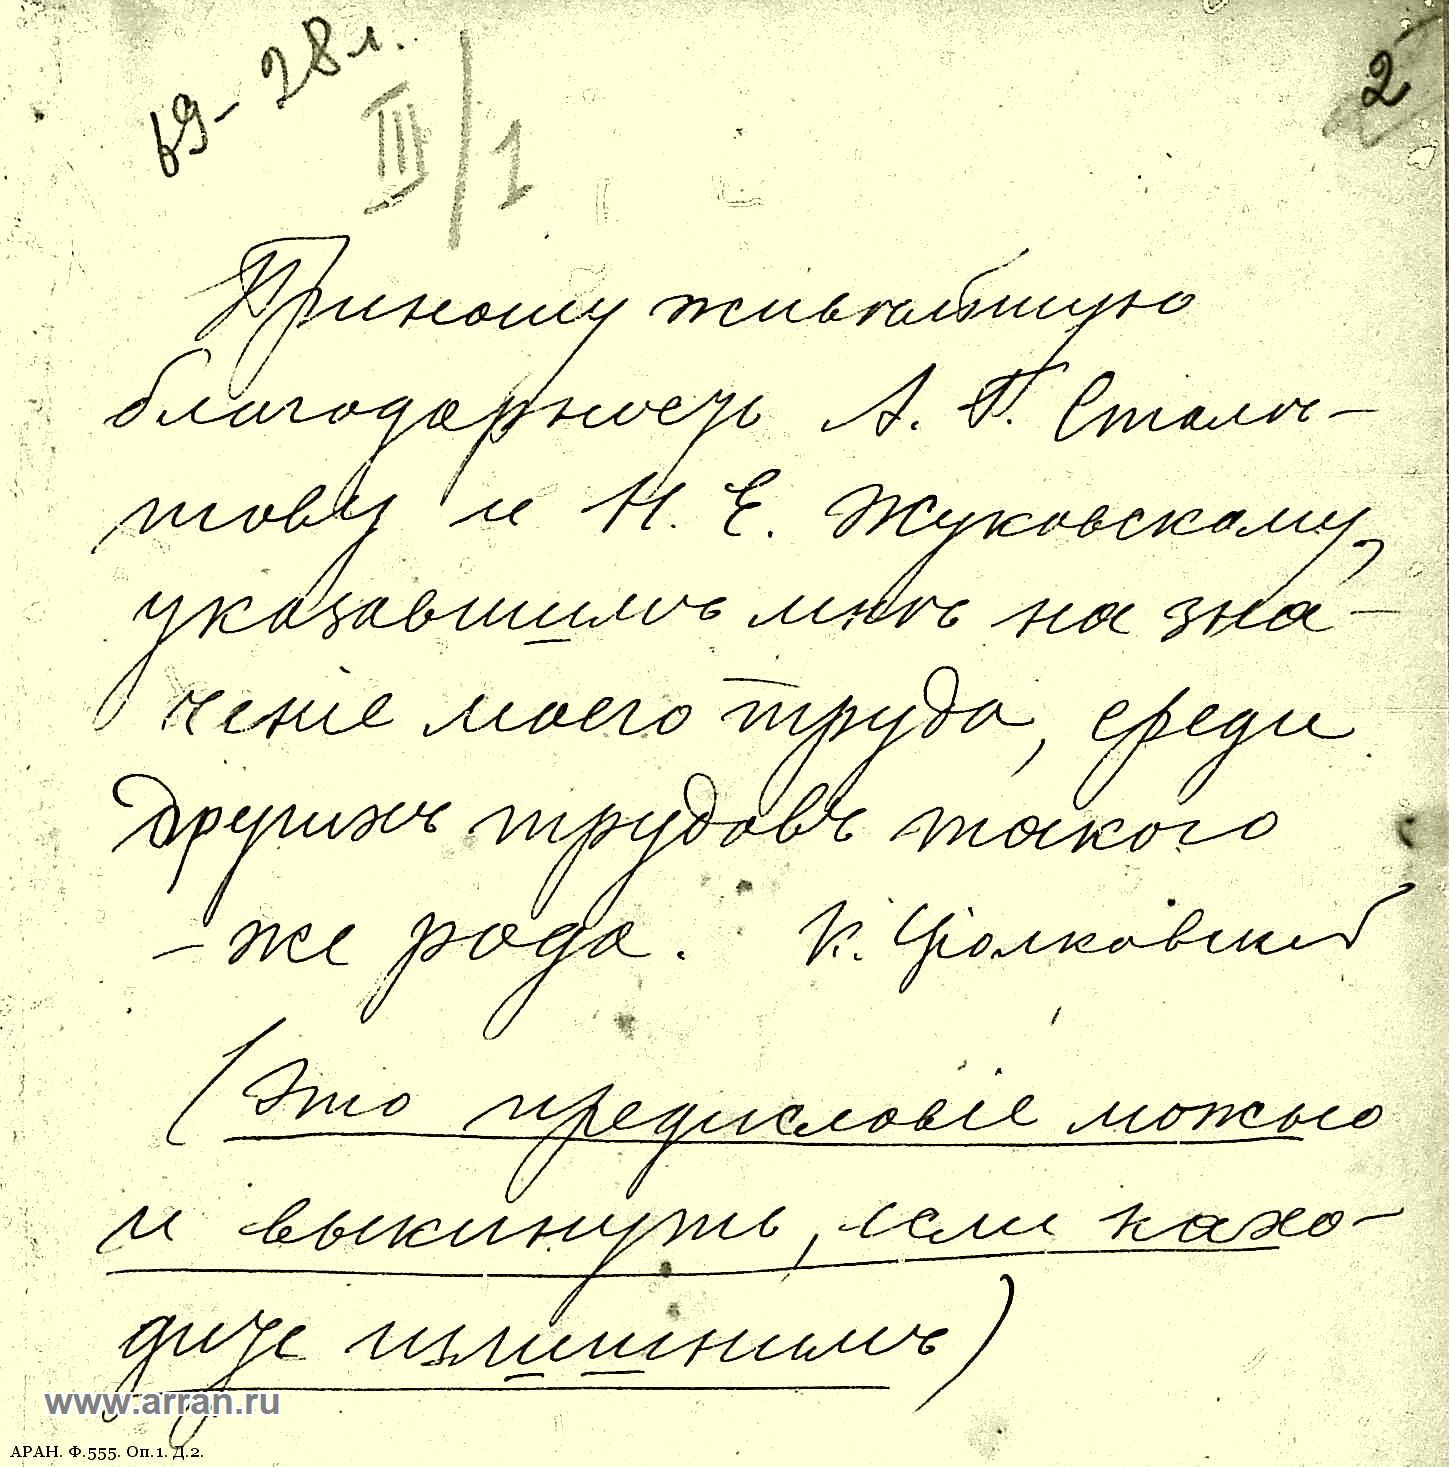 69-28 л.
III/1
2
Приношу живѣйшую
благодарность А. Г. Столѣ-
тову и Н. Е. Жуковскому,
указавшимъ мнѣ на зна-
ченіе моего труда, среди
другихъ трудовъ такого
-же рода. К. Ціолковскій
(Это предисловіе можно
и выкинуть, если нахо-
дите излишнимъ)
www.arran.ru
АРАН. Ф.555. Оп.1. Д.2.